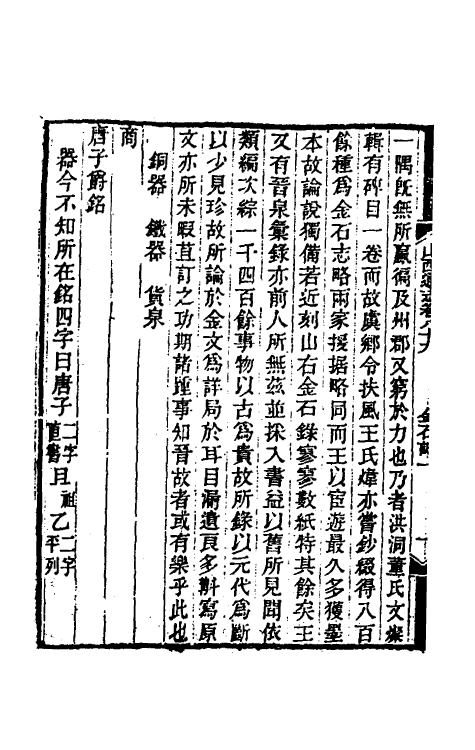 山西通志卷八十九
金石記一
一隅既無所贏徧及州郡又窮於力也乃者洪洞董氏文燦
輯有碑目一卷而故虞鄉令扶風王氏煒亦嘗鈔綴得八百
餘種爲金石志略兩家援据略同而王以宦遊最久多獲墨
本故論說獨備若近刻山右金石錄寥寥數紙特其餘矣王
又有晉泉彙錄亦前人所無茲並採入書益以舊所見聞依
類編次綜一千四百餘事物以古爲貴故所錄以元代爲斷
以少見珍故所論於金文爲詳局於耳目漏遺良多斠寫原
文亦所未暇苴訂之功期諸踵事知晉故者或有樂乎此也
銅器 鐵器 貨泉
商
唐子爵銘
器今不知所在銘四字曰唐子二字直書且祖乙二字平列